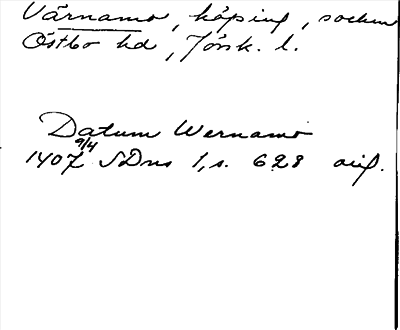 Värnamo, köping, socken
Östbo hd, Jönk. l.
Datum Wernamo
1407 9/4 SDns 1, s. 628 orig.